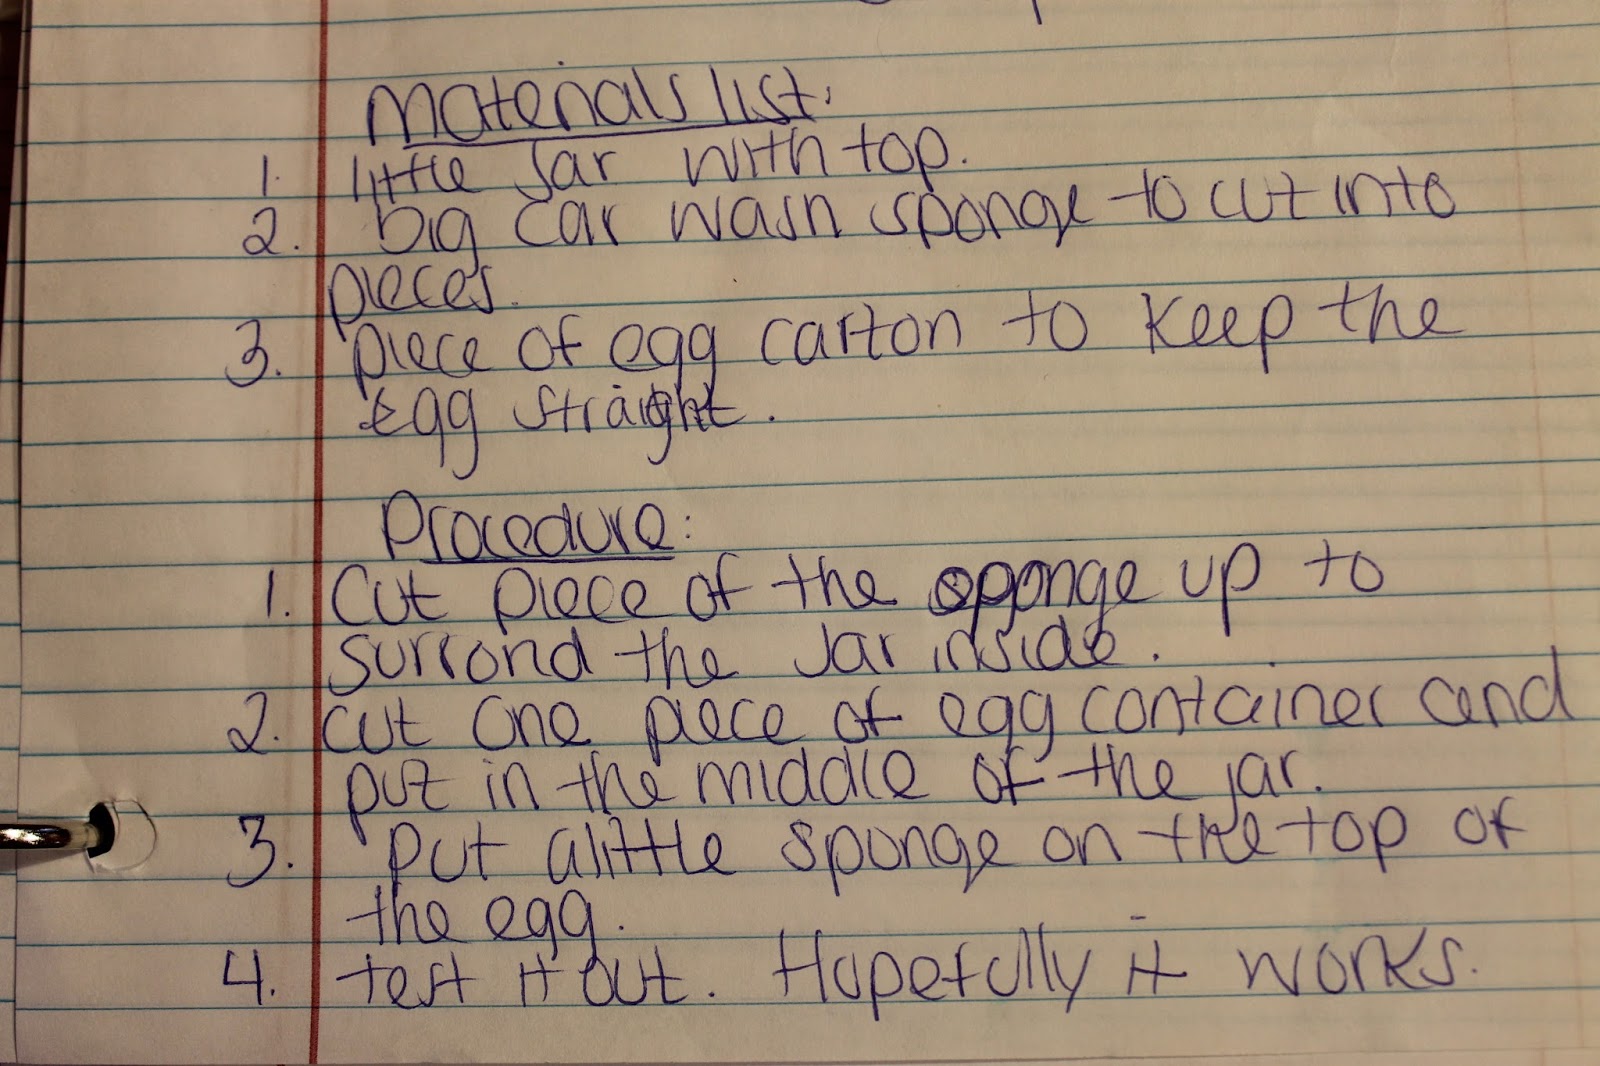 Materials list:
1. little Jar with top.
2. big car wash sponge to cut into
pieces.
3. piece of egg carton to keep the
Egg straight.
Procedure:
1. Cut piece of the sponge up to
surrond the Jar inside.
2. cut one piece of egg container and
put in the middle of the jar.
3. put alittle sponge on the top of
the egg.
4. test it out. Hopefully it works.